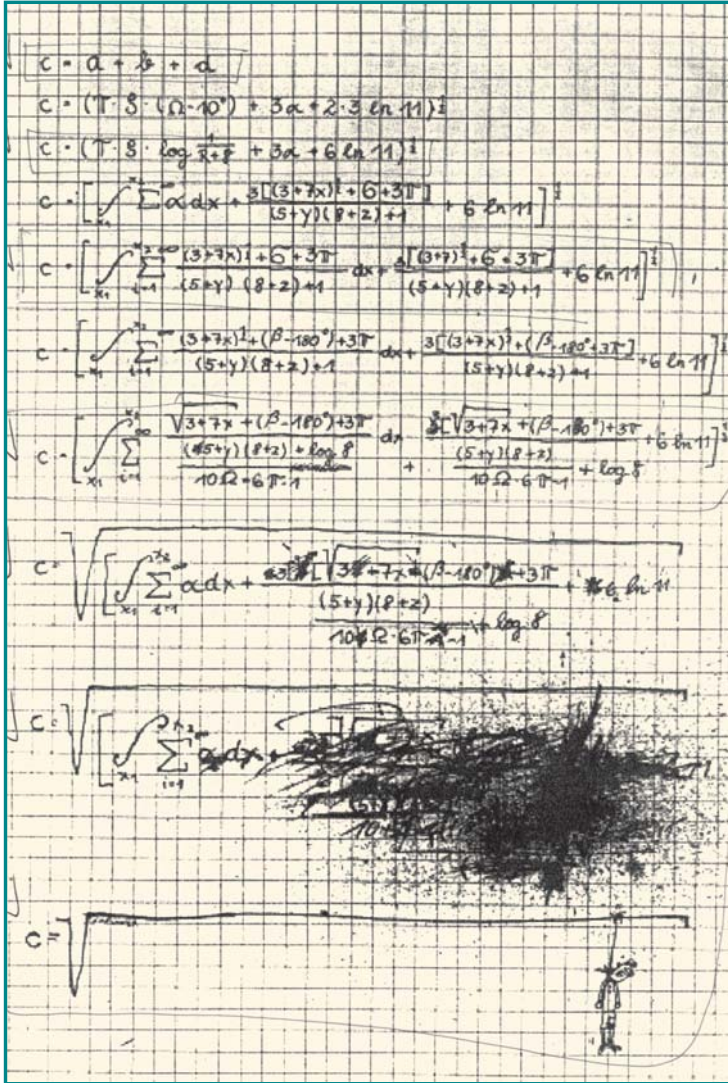 c = a + b + d
c = (T · S · (Ω-10°) + 3α + 2·3 ln 11)^½
c = (T · S · log 1/(R+8) + 3α + 6 ln 11)^½
c = [∫_{x₁}^{x₂} Σ^∞ α dx + 3[(3+7x)^½ + 6 + 3π] / (5+y)(8+z)+1 + 6 ln 11]^½
c = [∫_{x₁}^{x₂} Σ_{i=1}^∞ (3+7x)^½ + 6 + 3π / (5+y)(8+z)+1 dx + 3[(3+7)^½ + 6 + 3π] / (5+y)(8+z)+1 + 6 ln 11]^½
c = [∫_{x₁}^{x₂} Σ_{i=1}^∞ (3+7x)^½ + (β-180°) + 3π / (5+y)(8+z)+1 dx + 3[(3+7x)^½ + (β-180°+3π] / (5+y)(8+z)+1 + 6 ln 11]^½
c = [∫_{x₁}^{x₂} Σ_{i=1}^∞ √3+7x + (β-180°)+3π / (5+y)(8+z) + log 8 / 10Ω-6π-1 dx + 3[√3+7x + (β-180°)+3π / (5+y)(8+z) / 10Ω·6π-1 + log 8 + 6 ln 11]^½
c = √[∫_{x₁}^{x₂} Σ_{i=1}^∞ α dx + [√3+7x+(β-180°)+3π / (5+y)(8+z) / 10Ω·6π-1 + log 8 + 6 ln 11
c = √[∫_{x₁}^{x₂} Σ_{i=1}^∞ α dx +
c = √